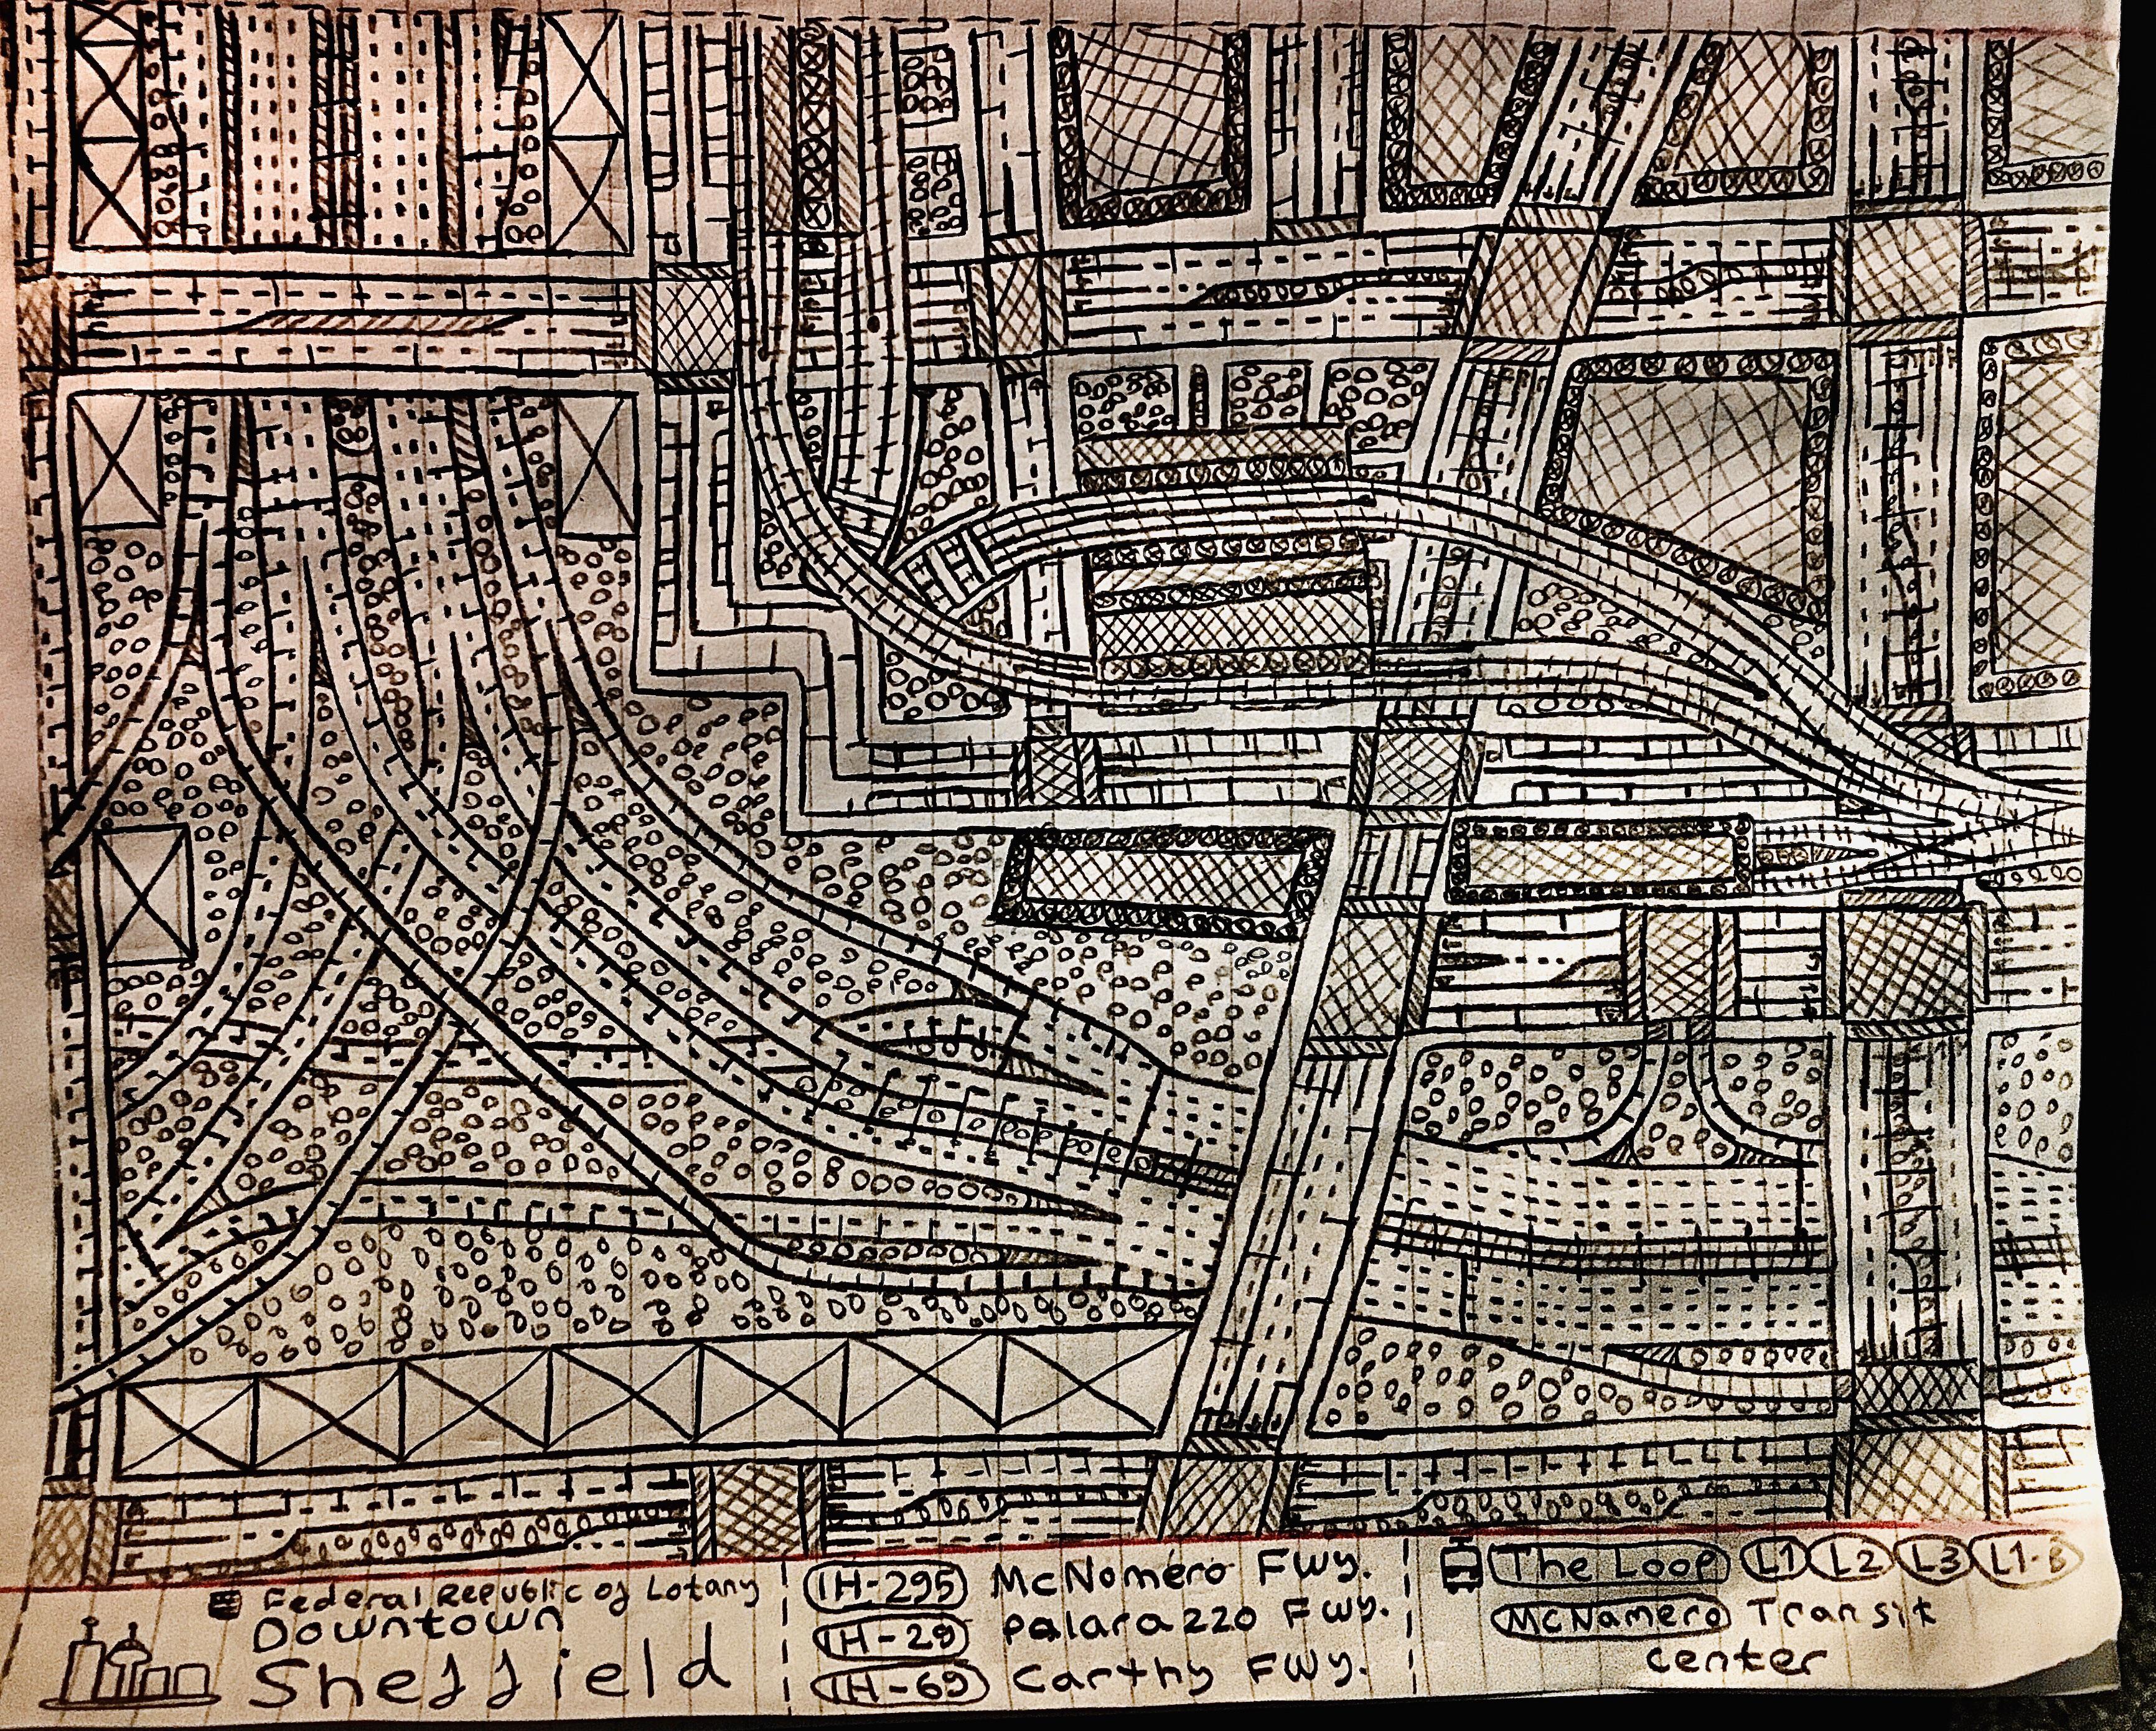 Federal Republic of Lotany
Downtown
Sheffield
IH-295 McNomero Fwy.
IH-29 Palarazzo Fwy.
IH-69 Carthy FWY.
The Loop L1 L2 L3 L1-B
McNamero Transit
center